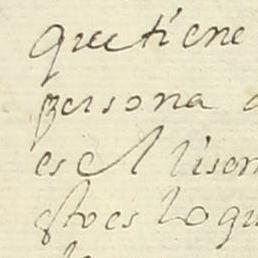 que tiene
persona
es el lison
esto es lo qu